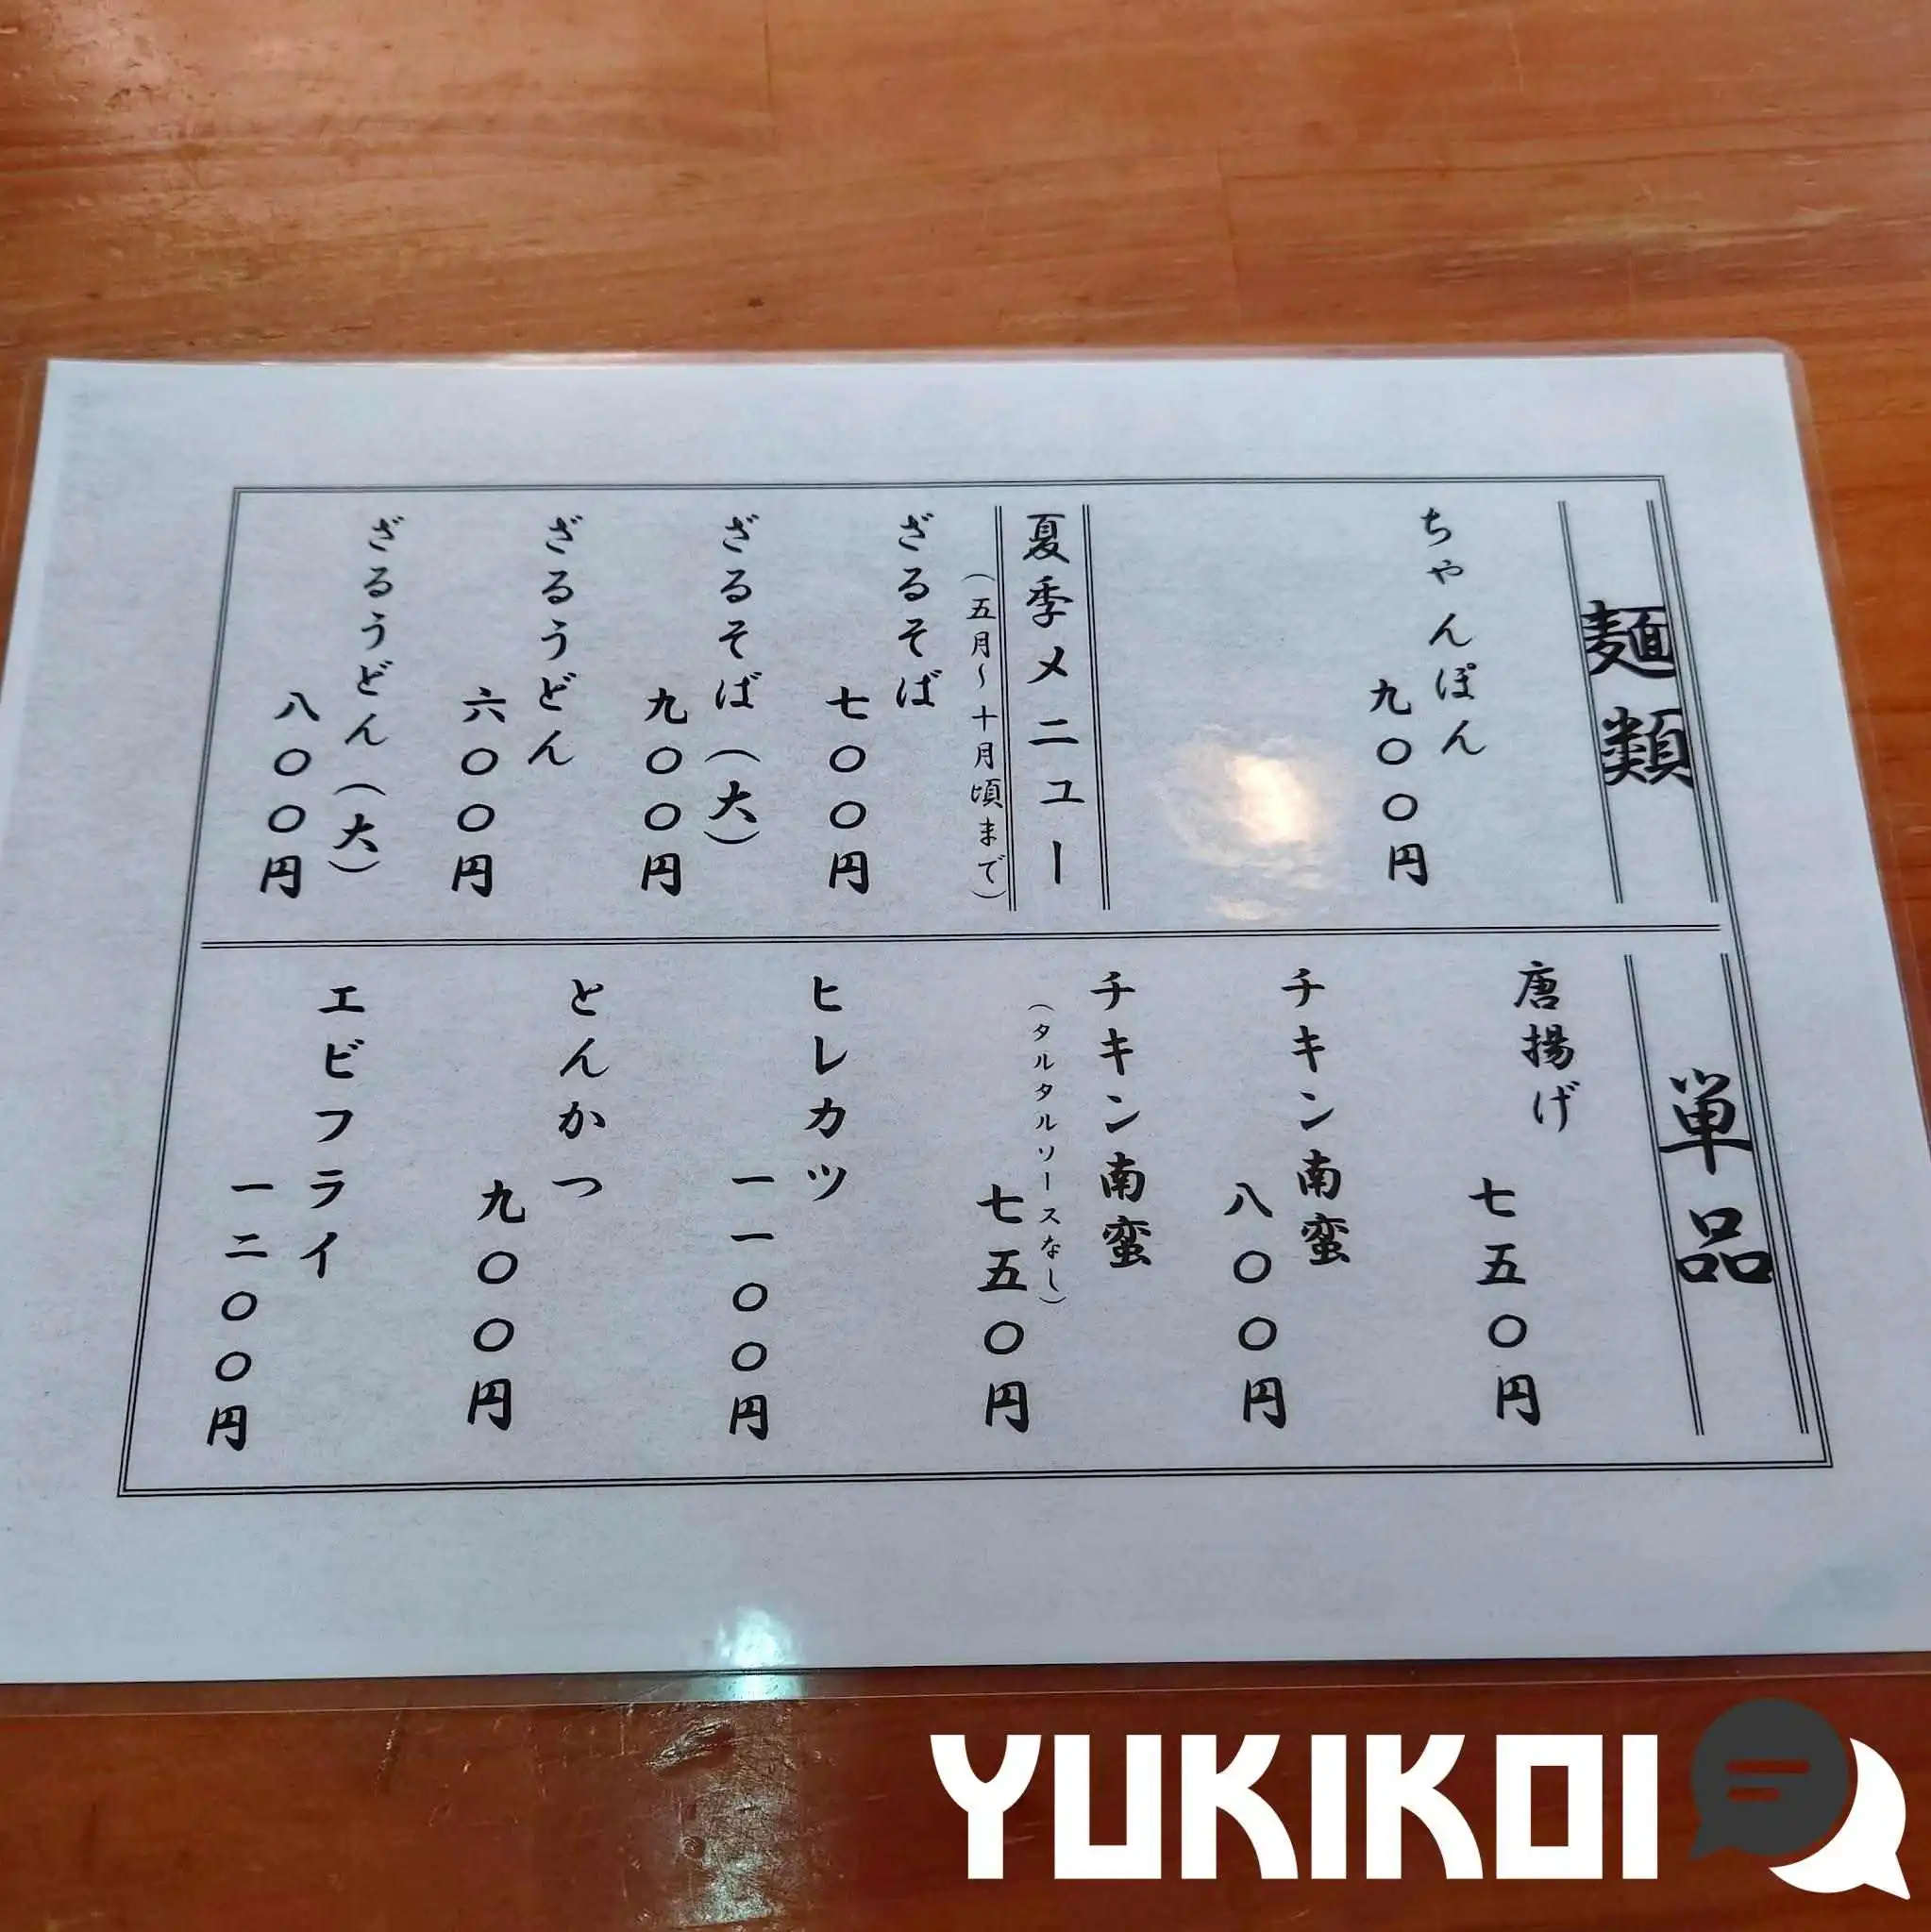 麺類
ちゃんぽん
九〇〇円
夏季メニュー
（五月〜十月頃まで）
ざるそば
七〇〇円
ざるそば（大）
九〇〇円
ざるうどん
六〇〇円
ざるうどん（大）
八〇〇円
単品
唐揚げ
七五〇円
チキン南蛮
八〇〇円
チキン南蛮
（タルタルソースなし）
七五〇円
ヒレカツ
一一〇〇円
とんかつ
九〇〇円
エビフライ
一二〇〇円
YUKIKOI